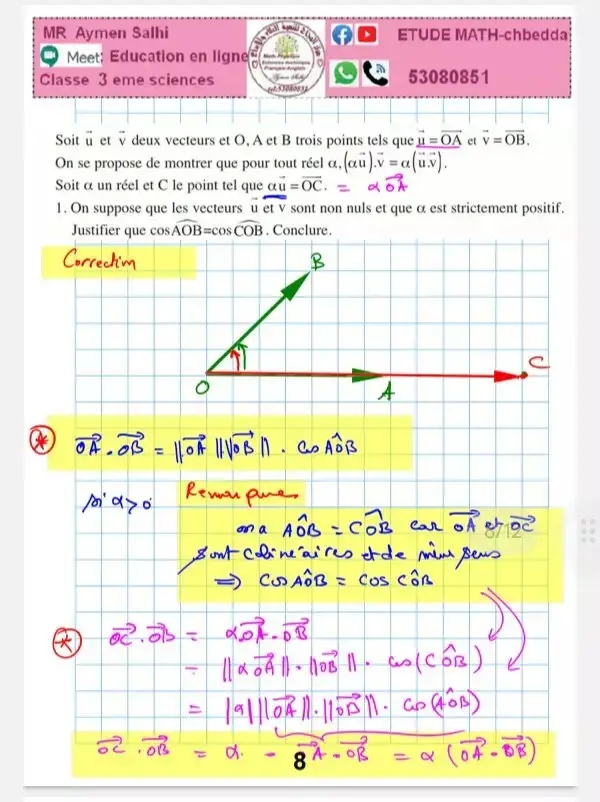 MR Aymen Salhi
Meet: Education en ligne
Classe 3 eme sciences
ETUDE MATH-chbedda
53080851
Soit u⃗ et v⃗ deux vecteurs et O, A et B trois points tels que u⃗ = OA⃗ et v⃗ = OB⃗.
On se propose de montrer que pour tout réel α, (αu⃗).v⃗ = α(u⃗.v⃗).
Soit α un réel et C le point tel que αu⃗ = OC⃗. = αOA⃗
1. On suppose que les vecteurs u⃗ et v⃗ sont non nuls et que α est strictement positif.
Justifier que cos AOB=cos COB. Conclure.
Correction
B
O
A
C
OA⃗ . OB⃗ = ||OA⃗|| ||OB⃗|| . Cos AÔB
si α > 0
Remarque
on a AÔB = CÔB car OA⃗ et OC⃗
8/12
sont colinéaires et de même sens
⇒ Cos AÔB = cos CÔB
OC⃗ . OB⃗ = αOA⃗ . OB⃗
= ||αOA⃗|| . ||OB⃗|| . cos(CÔB)
= |α| ||OA⃗|| . ||OB⃗|| . cos(AÔB)
OC⃗ . OB⃗ = α . A⃗ . OB⃗ = α (OA⃗ . OB⃗)
8